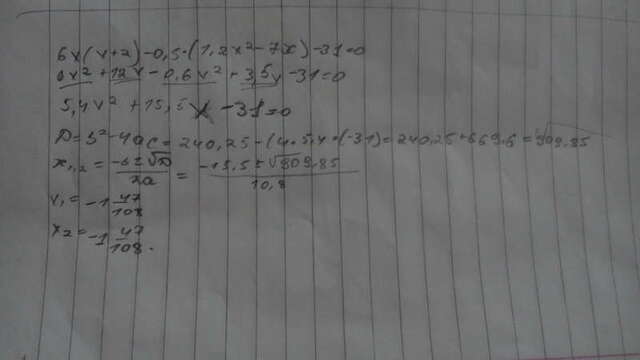 6x(x+2)-0,5·(1,2x²-7x)-31=0
6x²+12x-0,6x²+3,5x-31=0
5,4x²+15,5x-31=0
D=b²-4ac=240,25-(4·5,4·(-31)=240,25+669,6=√909,85
x₁,₂=(-b±√D)/2a=(-15,5±√909,85)/10,8
x₁=-1 47/108
x₂=-1 47/108.